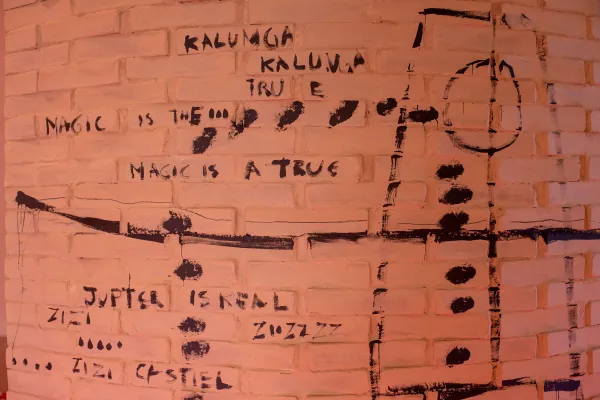 KALUNGA
KALUNGA
TRUE
MAGIC IS THE
MAGIC IS A TRUE
JUPTER IS REAL
ZIZI
ZIIZZZZ
ZIZI CASTIEL